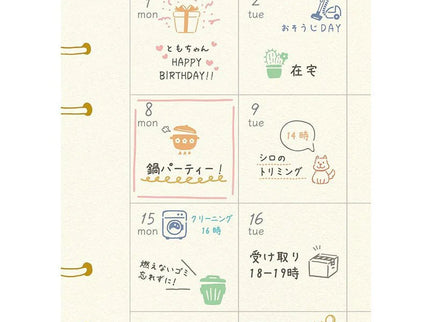 1
mon
ともちゃん
HAPPY
BIRTHDAY!!
2
tue
おそうじDAY
在宅
8
mon
鍋パーティー!
9
tue
14時
シロの
トリミング
15
mon
クリーニング
16時
燃えないゴミ
忘れずに!
16
tue
受け取り
18-19時